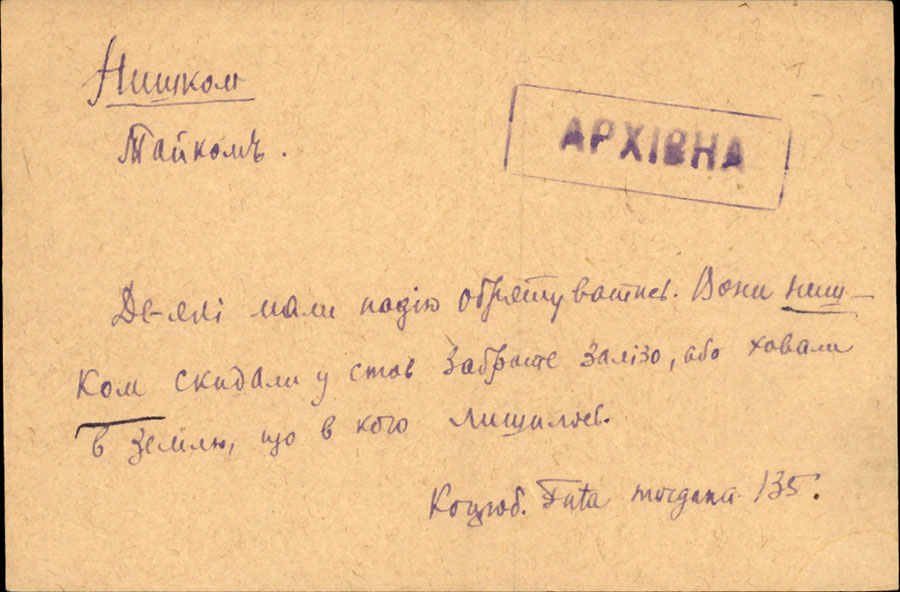 Нишком
АРХІВНА
Тайкомъ.
Де-які мали надію обрятуватись. Вони ниш-
ком скидали у став забране залізо, або ховали
в землю, що в кого лишилось.
Коцюб. Fata morgana 135.